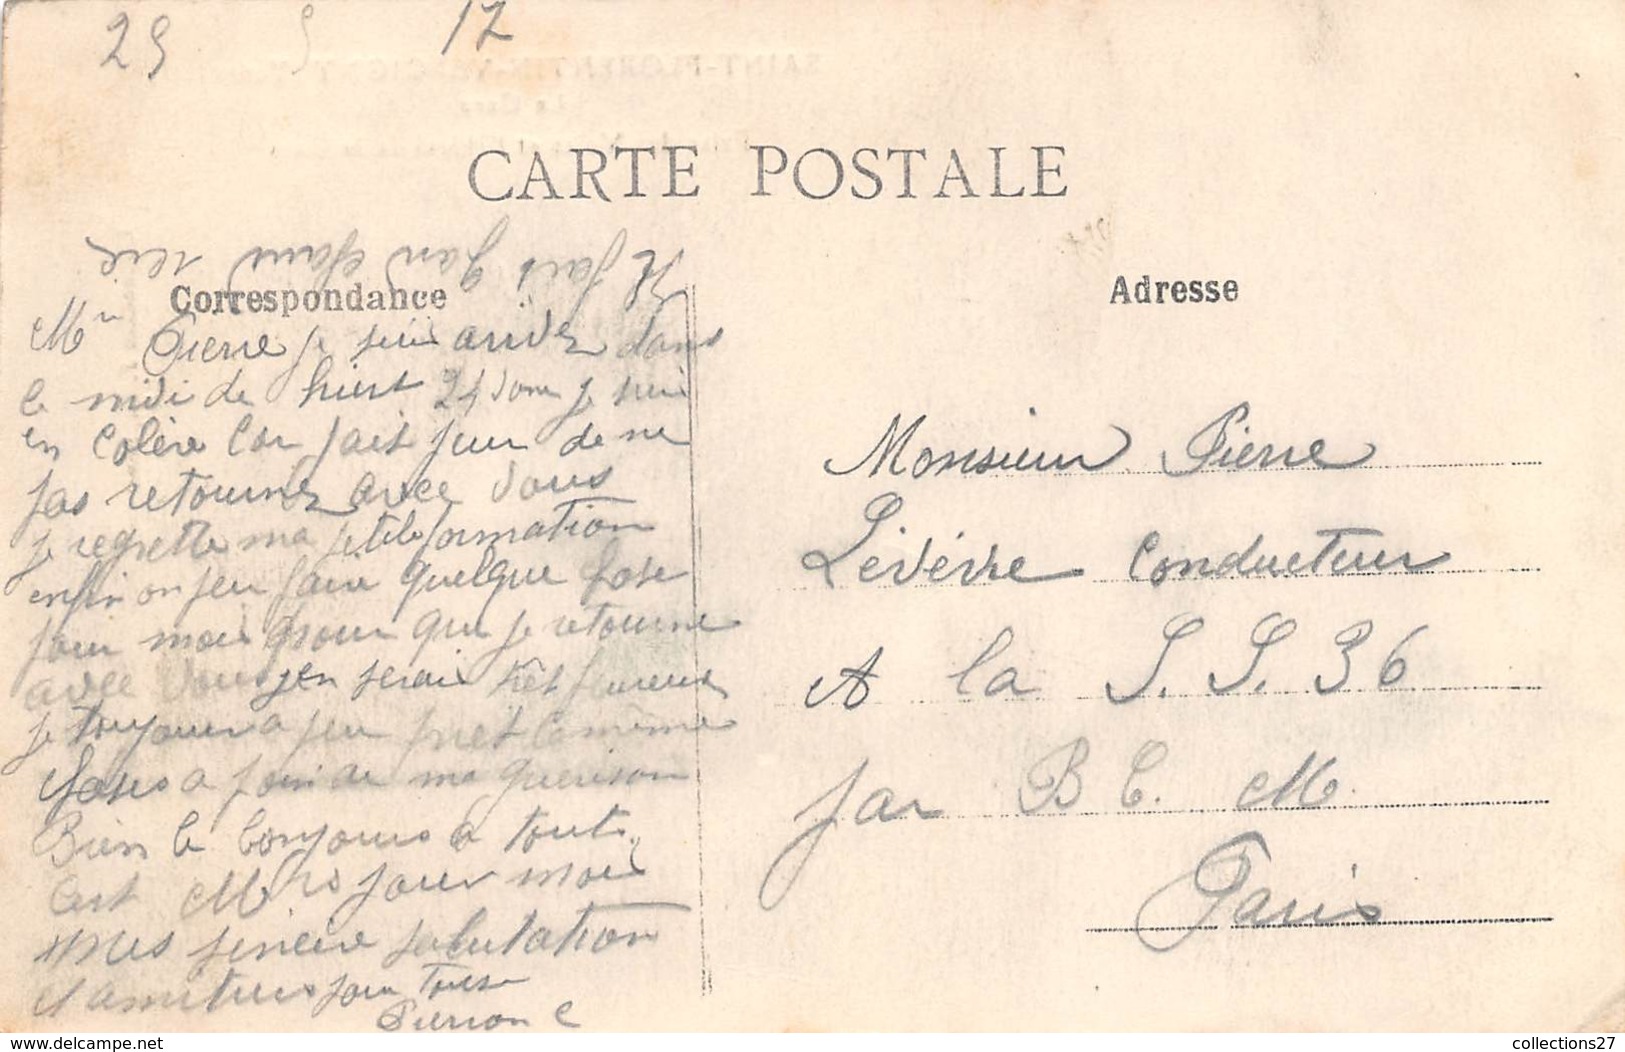 29 5 12
SAINT-FLORENTIN
CARTE POSTALE
Correspondance
Adresse
Mr Pierre je suis arivez dans
le midi de hiert 24 dont je suis
en Colère Con fait peur de ne
pas retournez avec Vous
je regrette ma petite formation
enfin on peu faire quelque chose
pour moi pour que je retourne
avec Vous j'en serai très heureux
je toujours a peu près le même
a poin de ma guerison
Bien le bonjours a tout
C'est Mrs pour moi
mes sincère salutation
et amitiers pour Tous
Pierron C
Monsieur Pierre
Lévévre Conducteur
A la S. S. 36
par B C. M.
Paris
collections27